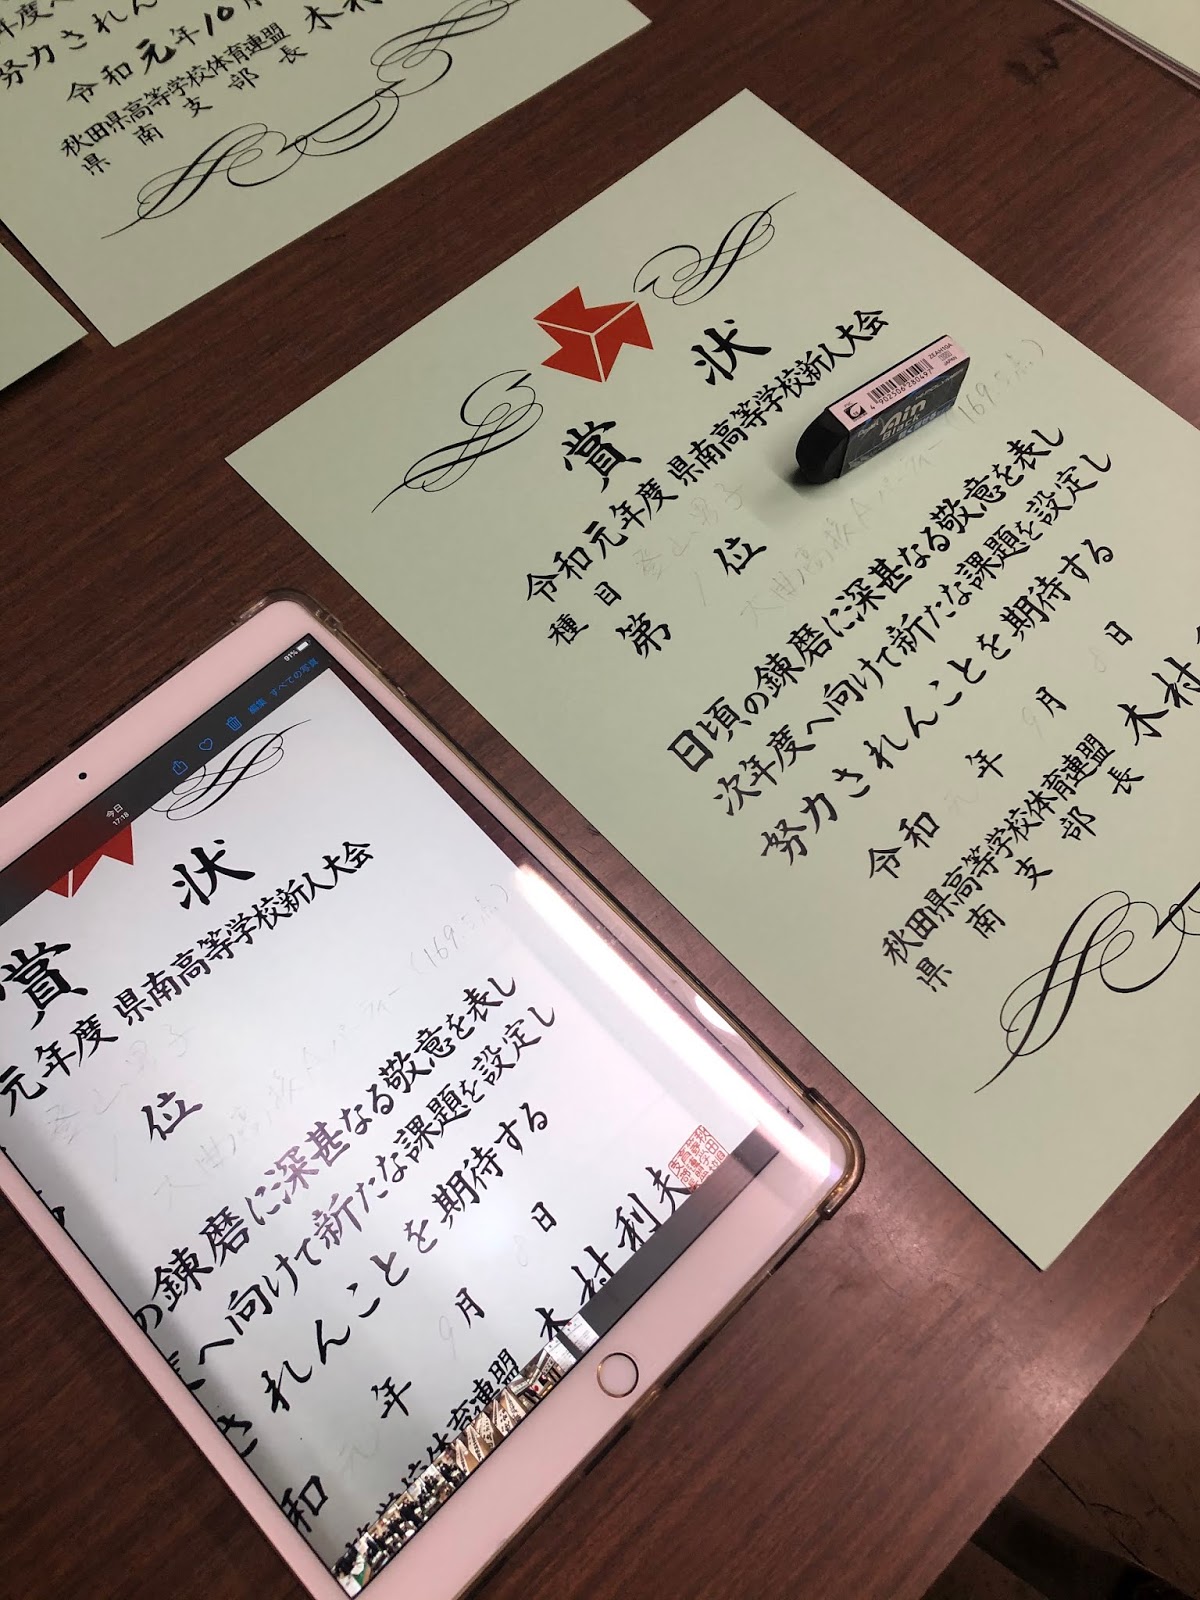 努力されん
令和元年10月
秋田県高等学校体育連盟
県南支部長
賞状
令和元年度 県南高等学校新人大会
種目 登山男子
第1位
大曲高校Aパーティー
日頃の錬磨に深甚なる敬意を表し
次年度へ向けて新たな課題を設定し
努力されんことを期待する
令和元年9月8日
秋田県高等学校体育連盟
県南支部長 木村
Ain
Black
ZEAH10A
JAPAN
4 902506 280497
91%
今日
17:18
編集 すべての写真
賞状
元年度 県南高等学校新人大会
登山男子
位
大曲高校Aパーティー
の錬磨に深甚なる敬意を表し
へ向けて新たな課題を設定し
されんことを期待する
和元年9月8日
体育連盟
木村利夫